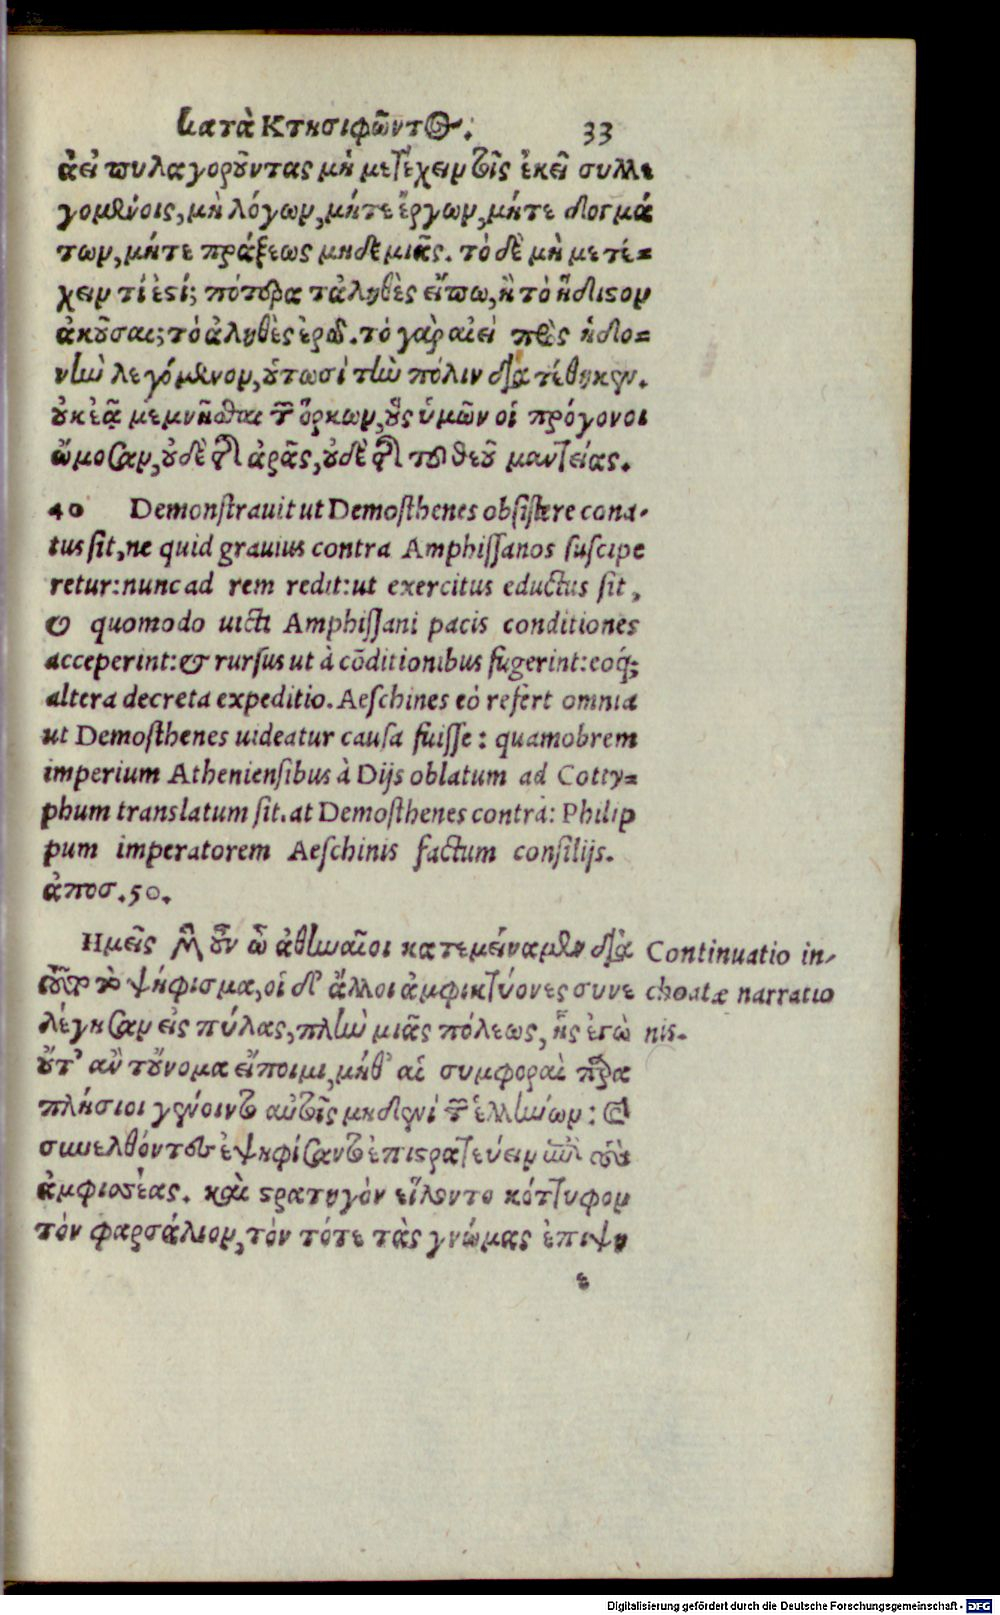 κατὰ Κτησιφῶντος. 33
ἀεὶ πυλαγοροῦντας μὴ μετέχειν τοῖς ἐκεῖ συλλε
γομένοις, μὴ λόγων, μήτε ἔργων, μήτε δογμά
των, μήτε πράξεως μηδεμιᾶς. τὸ δὲ μὴ μετέ=
χειν τί ἐστί; πότερα τἀληθὲς εἴπω, ἢ τὸ ἥδιστον
ἀκοῦσαι; τὸ ἀληθὲς ἐρῶ. τὸ γὰρ αἰεὶ πρὸς ἡδο=
νὴν λεγόμενον, οὑτωσὶ τὴν πόλιν διατέθηκεν.
οὐκ ἐᾷ μεμνῆσθαι τῶν ὅρκων, οὓς ὑμῶν οἱ πρόγονοι
ὤμοσαν, οὐδὲ τῆς ἀρᾶς, οὐδὲ τῆς τοῦ θεοῦ μαντείας.
40 Demonſtrauit ut Demoſthenes obſiſtere cona-
tus ſit, ne quid grauius contra Amphiſſanos ſuſcipe
retur: nunc ad rem redit: ut exercitus eductus ſit,
& quomodo uicti Amphiſſani pacis conditiones
acceperint: & rurſus ut à cōditionibus fugerint: eoq́;
altera decreta expeditio. Aeſchines eò refert omnia
ut Demoſthenes uideatur cauſa fuiſſe: quamobrem
imperium Athenienſibus à Dijs oblatum ad Cotty=
phum translatum ſit. at Demoſthenes contrà: Philip
pum imperatorem Aeſchinis factum conſilijs.
ἀποσ. 50.
Ἡμεῖς μὲν οὖν ὦ ἀθηναῖοι κατεμείναμεν διὰ
τοῦτο τὸ ψήφισμα, οἱ δ' ἄλλοι ἀμφικτύονες συνε
λέγησαν εἰς πύλας, πλὴν μιᾶς πόλεως, ἧς ἐγὼ
οὔτ' ἂν τοὔνομα εἴποιμι, μήθ' αἱ συμφοραὶ παρα
πλήσιοι γένοιντο αὐτοῖς μηδενὶ τῶν ἑλλήνων: καὶ
συνελθόντες ἐψηφίσαντο ἐπιστρατεύειν ἐπὶ τοὺς
ἀμφισσέας. καὶ στρατηγὸν εἵλοντο κόττυφον
τὸν φαρσάλιον, τὸν τότε τὰς γνώμας ἐπιψη
ε
Continuatio in-
choatæ narratio
nis.
Digitalisierung gefördert durch die Deutsche Forschungsgemeinschaft - DFG